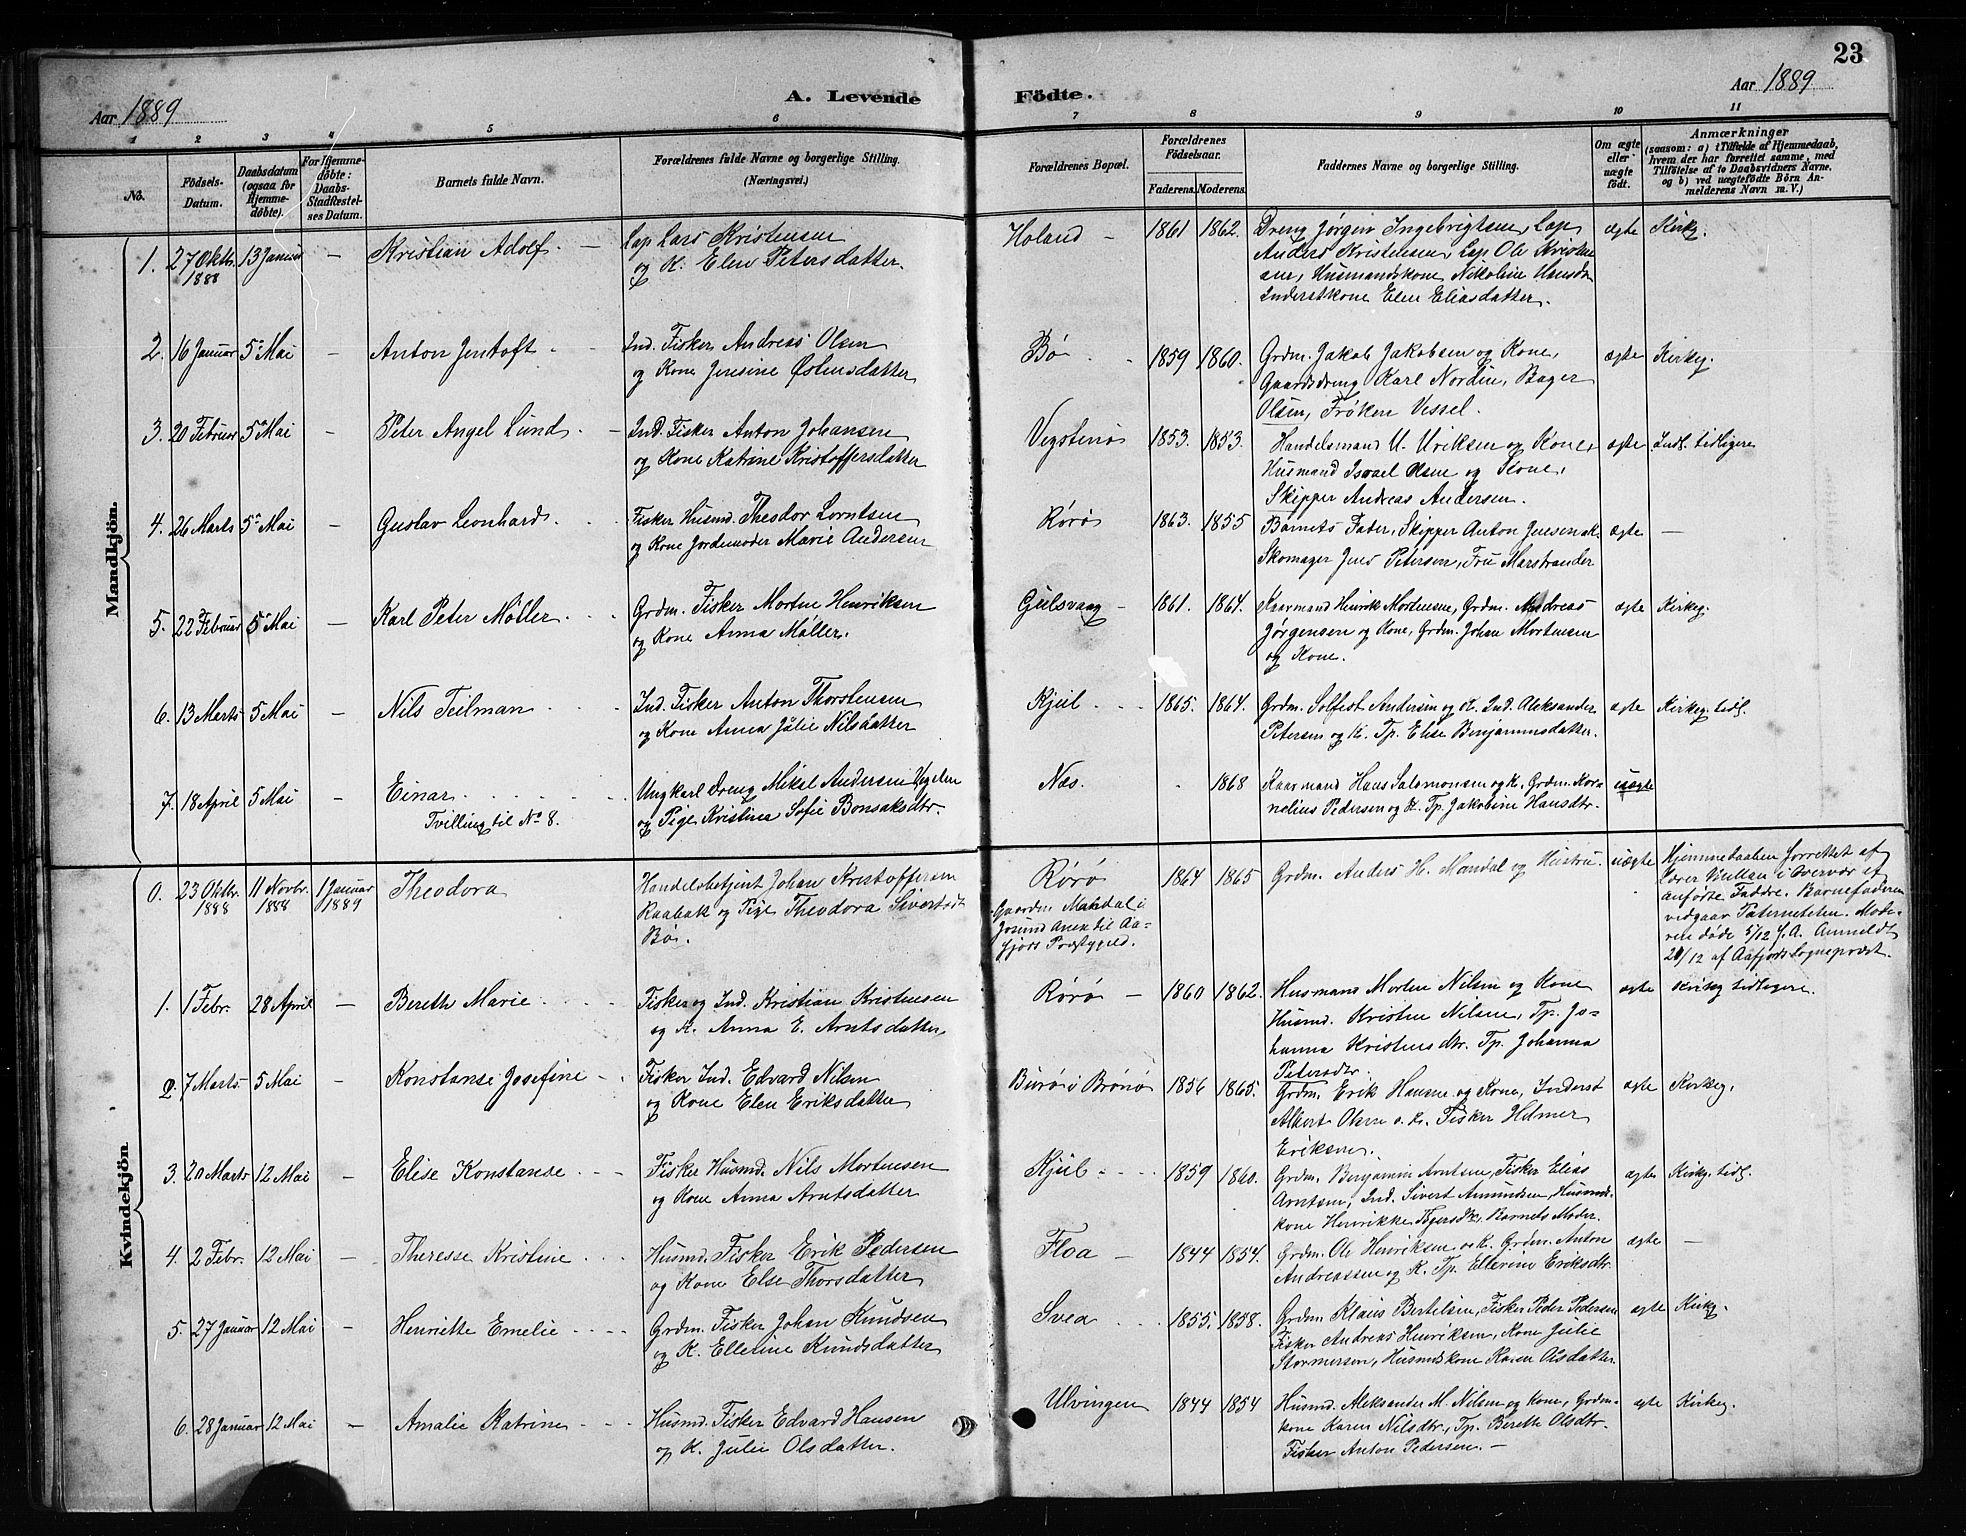 23
Aar 1889
A. Levende Födte.
Aar 1889
1 2 3 4 5 6 7 8 9 10 11
No.
Födsels-Datum.
Daabsdatum (ogsaa for Hjemmedöbte).
For Hjemmedöbte: Daabs-Stadfæstelses Datum.
Barnets fulde Navn.
Forældrenes fulde Navne og borgerlige Stilling. (Næringsvei.)
Forældrenes Bopæl.
Forældrenes Födselsaar.
Faderens. Moderens.
Faddernes Navne og borgerlige Stilling.
Om ægte eller uægte födt.
Anmærkninger (saasom: a) i Tilfælde af Hjemmedaab, hvem der har forrettet samme, med Tilföielse af to Daabsvidners Navne, og b) ved uægtefödte Börn Anmelderens Navn m. V.)
Mandkjön.
1. 27 Oktbr. 1888 13 Januar – Kristian Adolf. – Lap Lars Kristensen
og K. Elen Petersdatter.
Holand – 1861 1862. Dreng Jørgen Ingebrigtsen, Lap
Anders Kristensen, Lap Ole Kristen
sen, Husmandskone Nikoline Hansdr
Inderstkone Elen Eliasdatter.
ægte Kirkg.
2. 16 Januar 5 Mai – Anton Jentoft. Ind. Fisker Andreas Olsen
og Kone Jensine Østensdatter
Bø 1859 1860. Grdm. Jakob Jakobsen og Kone,
Gaardsdreng Karl Nordin, Bager
Olsen, Frøken Vessel.
ægte Kirkeg.
3. 20 Februar 5 Mai – Peter Angel Lund. – Ind. Fisker Anton Johansen
og Kone Katrine Kristoffersdatter
Vegstenø 1853. 1853. Handelsmand U. Uriksen og Kone,
Husmand Israel Olsen og Kone,
Skipper Andreas Andersen.
ægte Indl. tidligere
4. 26 Marts 5 Mai – Gustav Leonhard. Fisker Husmd. Theodor Lorntsen
og Kone Jordemoder Marie Andersen
Rørø 1863. 1855 Barnets Fader, Skipper Anton Jensen
Skomager Jens Petersen, Fru Marstrander
ægte –
5. 22 Februar 5 Mai – Karl Peter Møller. Grdm. Fisker Morten Henriksen
og Kone Anna Møller.
Gjulsvaag – 1861. 1864. Kaarmand Henrik Mortensen, Grdm. Andreas
Jørgensen og Kone, Grdm. Johan Mortensen
og Kone.
ægte Kirkeg.
6. 13 Marts 5 Mai – Nils Teilman Ind. Fisker Anton Thorstensen
og Kone Anna Julie Nilsdatter
Kjul 1865. 1864. Grdm. Solfest Andersen og K. Ind. Aleksander
Petersen og K. Tp. Elise Benjaminsdatter.
ægte Kirkeg. tidl.
7. 18 April 5 Mai – Einar Ungkarl Dreng Mikel Andersen Vegelen
Tvilling til No 8. og Pige Kristina Sofie Bonsaksdtr.
Næs. 1868 Kaarmand Hans Salomonsen og K. Grdm. Kor-
nelius Pedersen og K. Tp. Jakobine Hansdtr.
uægte
Kvindekjön
0. 23 Oktbr. 1888 11 Novbr. 1888 1 Januar 1889 Theodora Handelsbetjent Johan Kristoffersen
Raabak og Pige Theodora Sivertsdt
Bø.
Rørø
Gaarden Mandal i
Jøsund Anex til Aa-
fjors Præstegjeld.
1864 1865 Grdm. Anders H. Mandal og Hustru. uægte
Hjemmedaaben forrettet af
Lærer i Overvær af
anførte Faddre. Barnefaderen
vedgaar Paterneteten. Mode-
ren døde 5/12 f. A. Anmeldt
20/12 af Aafjords Sogneprest.
1. 1 Febr. 28 April – Bereth Marie Fisker og Ind. Kristian Kristensen
og K. Anna E. Arntsdatter
Rørø – 1860 1862. Husmand Morten Nilsen og Kone
Husmd. Kristen Nilsen, Tp. Jo-
hanna Kristensdtr. Tp. Johanna
Petersdtr.
ægte Kirkg tidligere.
2. 7 Marts 5 Mai – Konstanse Josefine – Fisker Ind. Edvard Nilsen
og Kone Elen Eriksdatter
Burø i Brønø 1856 1865. Grdm. Erik Hansen og Kone, Inderst
Albert Olsen o. K. Fisker Helmer
Eriksen.
ægte Kirkeg.
3. 20 Marts 12 Mai – Elise Konstanse Fisker Husmd. Nils Mortensen
og Kone Anna Arntsdatter
Kjul 1859 1860. Grdm. Benjamin Arntsen, Fisker Elias
Arntsen, Ind. Sivert Amundsen, Husmds-
kone Henrikke Barnets Moder.
ægte Kirkg. tidl.
4. 2 Febr. 12 Mai – Theresse Kristine Husmd. Fisker Erik Pedersen
og Kone Else Thorsdatter
Floa – 1844 1854. Grdm. Ole Henriksen o. K. Grdm. Anton
Andreassen og K. Tp. Ellerine Eriksdtr.
ægte –
5. 27 Januar 12 Mai – Henriette Emelie Grdm. Fisker Johan Knudsen
og K. Ellerine Knudsdatter
Svea 1855. 1858. Grdm Klaus Bertelsen, Fisker Peder Pedersen
Fisker Andreas Henriksen, Kone Julie
Stormersen, Husmdskone Karen Olsdatter
ægte Kirkg.
6. 28 Januar 12 Mai – Amalie Katrine Husmd. Fisker Edvard Hansen
og K. Julie Olsdatter.
Ulvingen 1844 1854 Husmd. Aleksander M. Nilsen og Kone, Grdm-
kone Karen Nilsdtr, Tp. Bereth Olsdtr.
Fisker Anton Pedersen. –
ægte Kirkeg.